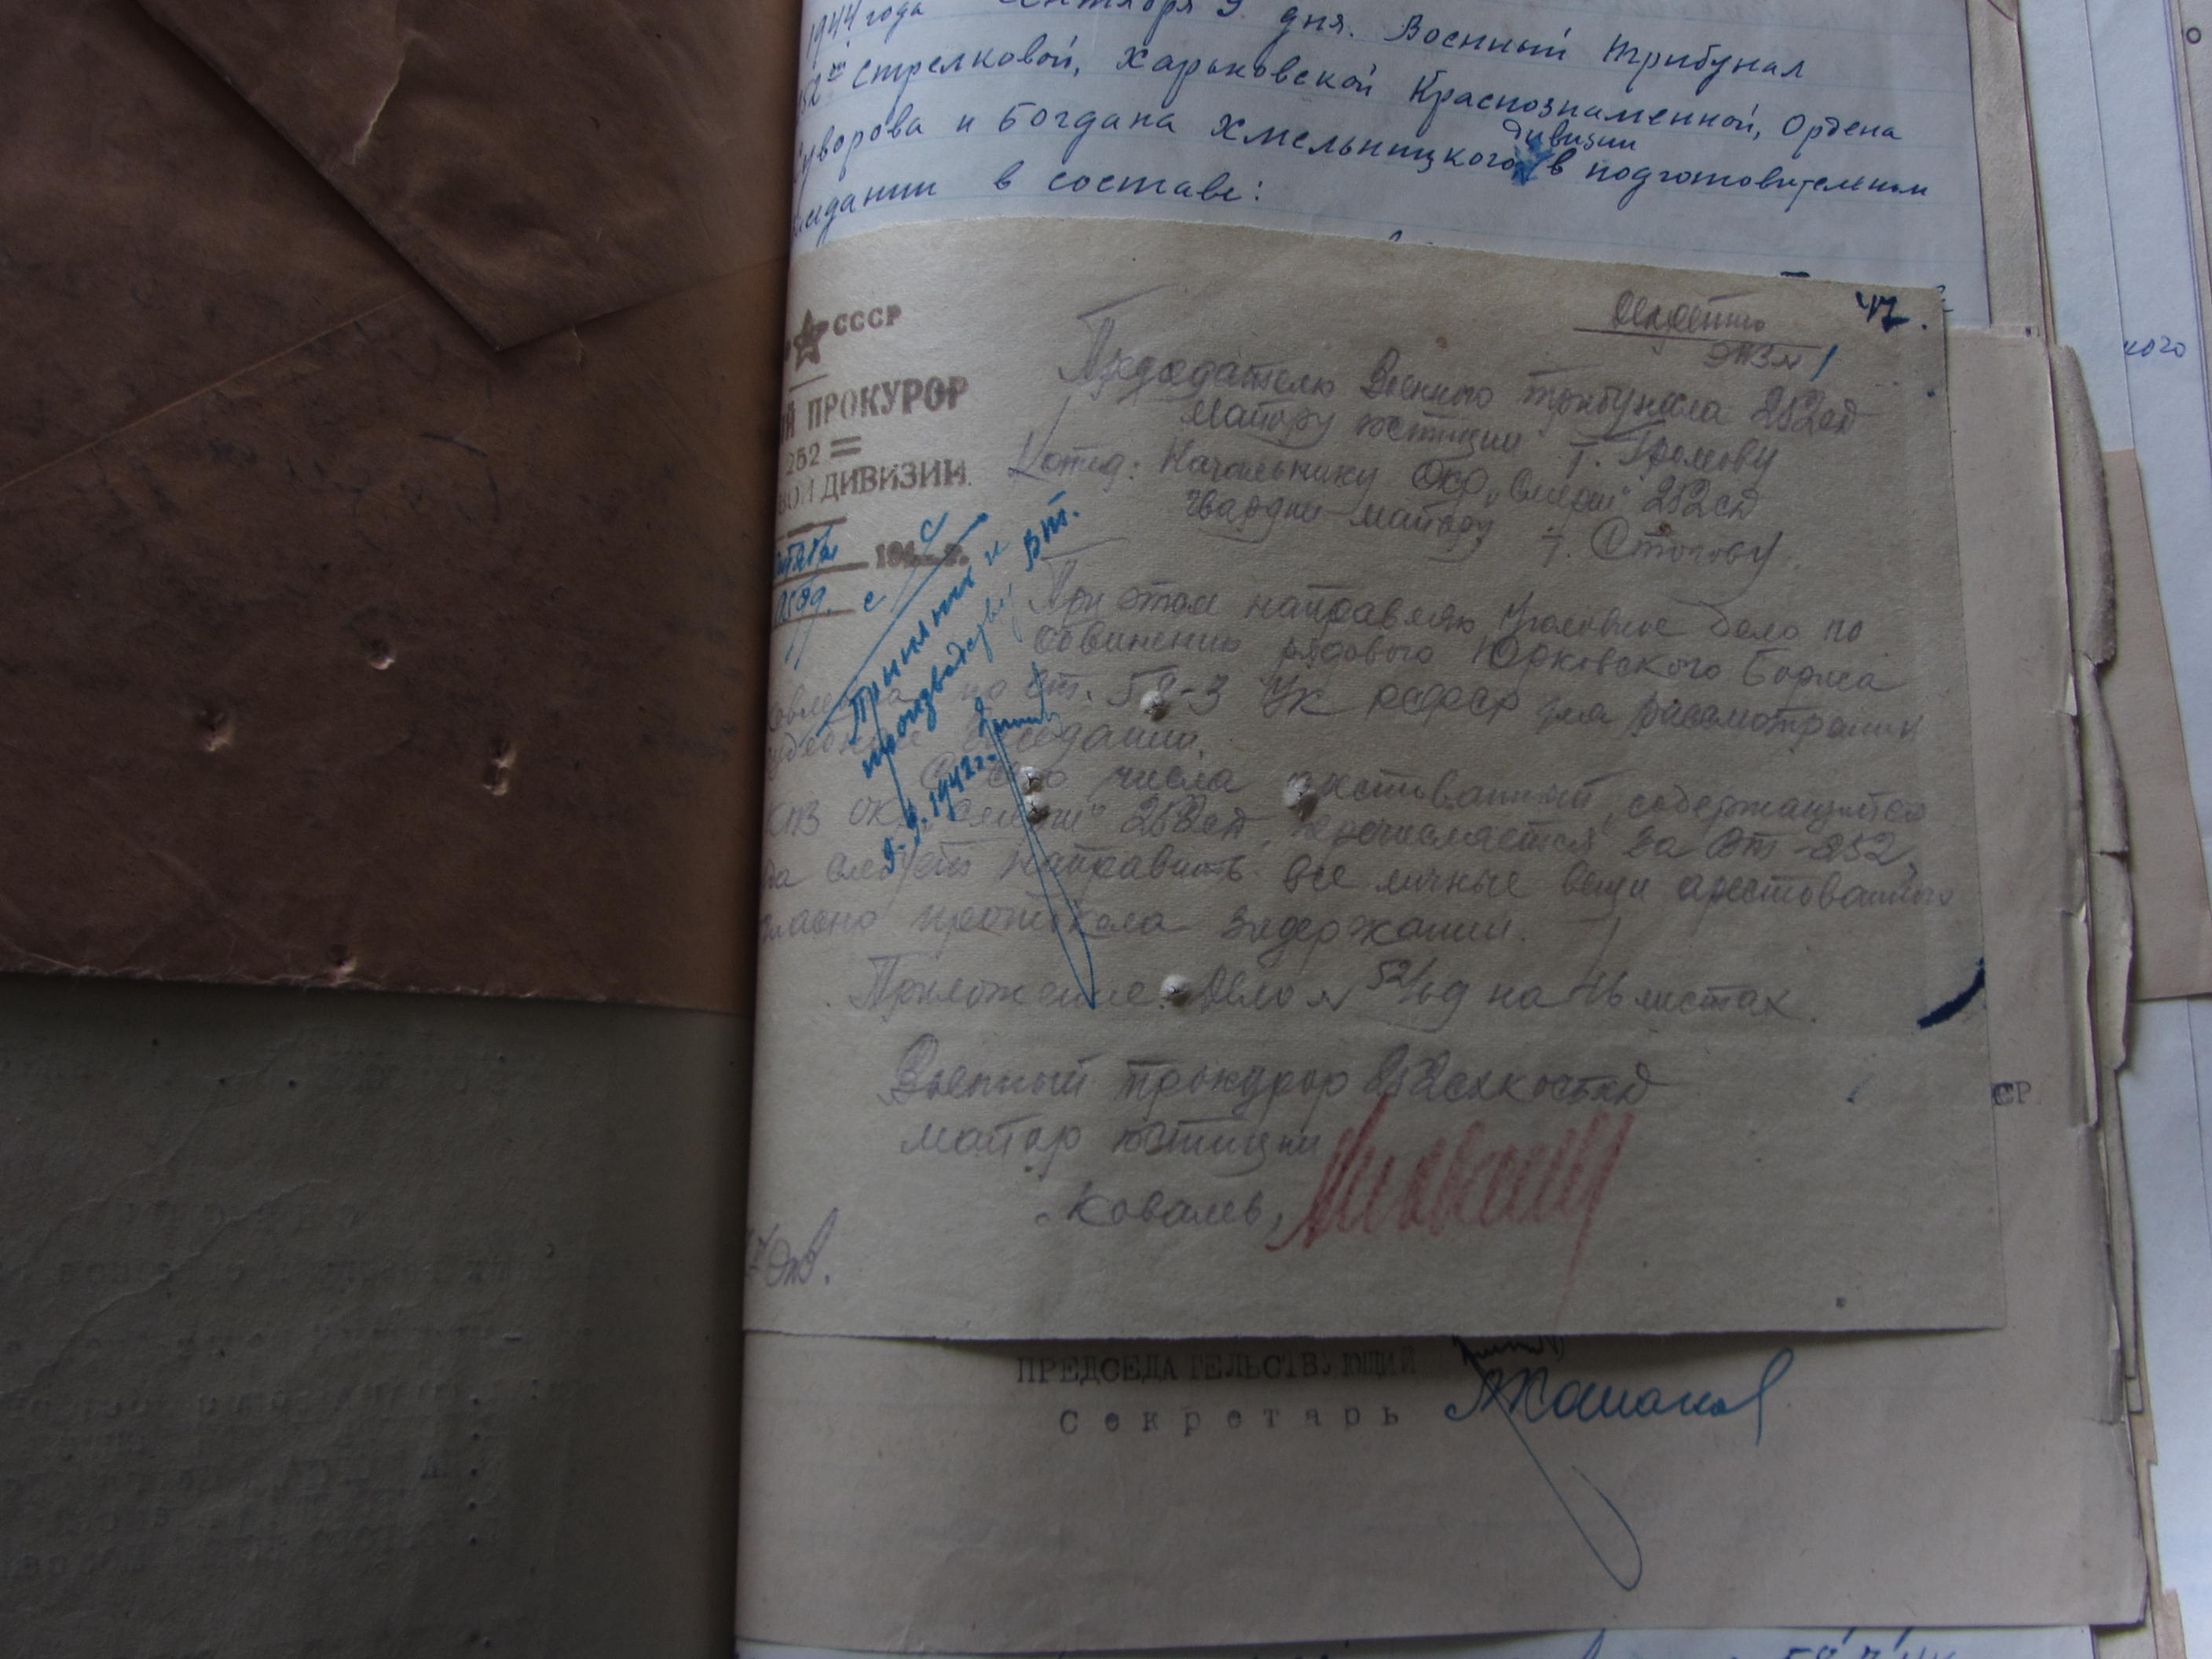 1944 года сентября 9 дня. Военный Трибунал
Стрелковой, Харьковской Краснознаменной, Ордена
Суворова и Богдана Хмельницкого дивизии в подготовительном
заседании в составе:
47.
Секретно
экз № 1
СССР
ПРОКУРОР
252
ДИВИЗИИ
194 4 г.
Председателю Военного трибунала 252 сд
майору юстиции т. Громову
Копия: Начальнику ОКР "Смерш" 252 сд
гвардии майору т.
Принять к
производству ВТ.
При этом направляю уголовное дело по
обвинению рядового Юрковского Бориса
по ст. 58-3 УК РСФСР для рассмотрения
судебном заседании.
С сего числа арестованный, содержащийся
КПЗ ОКР "Смерш" 252 сд, перечисляется за ВТ-252,
да следует направить все личные вещи арестованного
гласно протокола задержания.
Приложение: Дело № на 46 листах.
Военный прокурор 252
майор юстиции
Ковалев,
ПРЕДСЕДАТЕЛЬСТВУЮЩИЙ
Секретарь
СР
кого